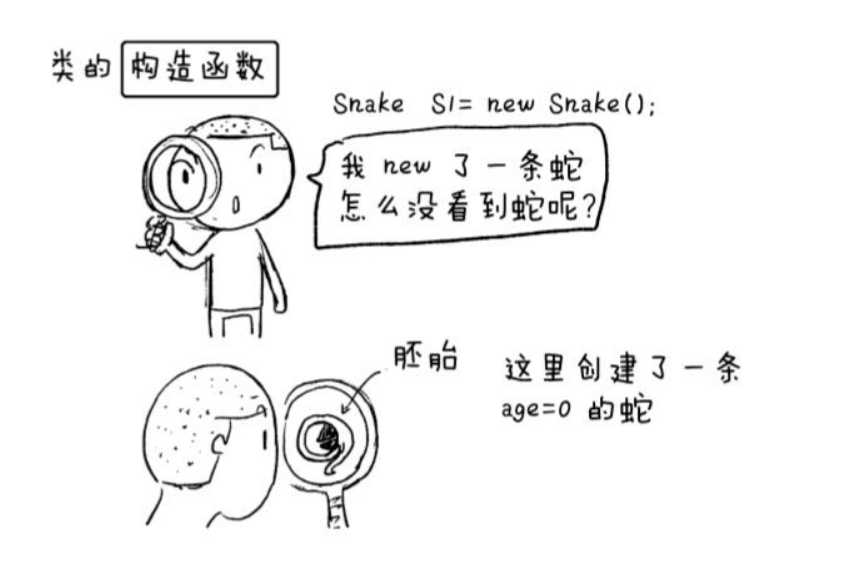 类的 构造函数
Snake S1= new Snake();
我 new 了一条蛇
怎么没看到蛇呢?
胚胎
这里创建了一条
age=0 的蛇